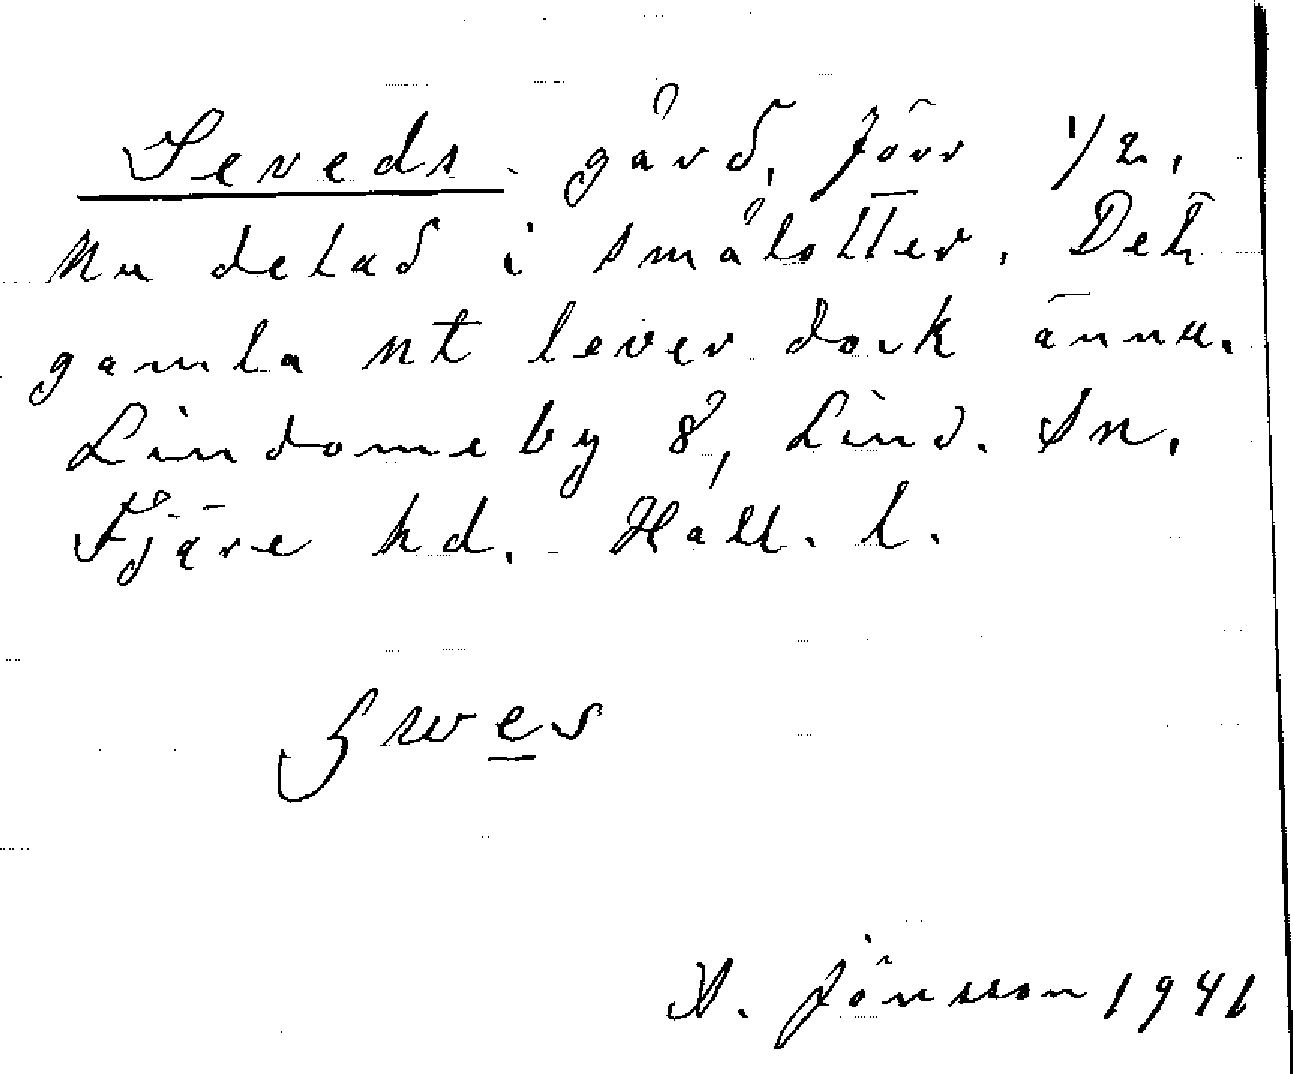 Seveds gård, förr 1/2,
nu delad i smålotter. Det
gamla nt lever dock ännu.
Lindome by 8, Lind. sn.
Fjäre hd. Hall. l.
A. Jönsson 1941